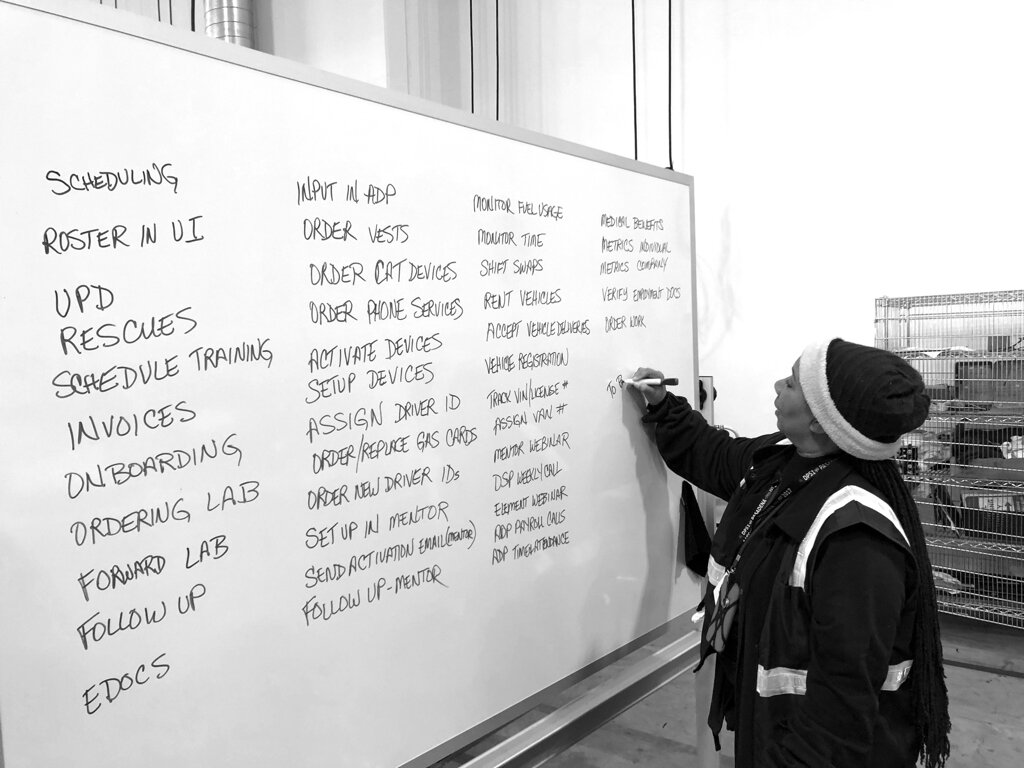 SCHEDULING
ROSTER IN UI
UPD
RESCUES
SCHEDULE TRAINING
INVOICES
ONBOARDING
ORDERING LAB
FORWARD LAB
FOLLOW UP
EDOCS
INPUT IN ADP
ORDER VESTS
ORDER CAT DEVICES
ORDER PHONE SERVICES
ACTIVATE DEVICES
SETUP DEVICES
ASSIGN DRIVER ID
ORDER/REPLACE GAS CARDS
ORDER NEW DRIVER IDs
SET UP IN MENTOR
SEND ACTIVATION EMAIL (MENTOR)
FOLLOW UP-MENTOR
MONITOR FUEL USAGE
MONITOR TIME
SHIFT SWAPS
RENT VEHICLES
ACCEPT VEHICLE DELIVERIES
VEHICLE REGISTRATION
TRACK VIN/LICENSE #
ASSIGN VAN #
MENTOR WEBINAR
DSP WEEKLY CALL
ELEMENT WEBINAR
ADP PAYROLL CALLS
ADP TIME & ATTENDANCE
MEDICAL BENEFITS
METRICS INDIVIDUAL
METRICS COMPANY
VERIFY EMPLOYMENT DOCS
ORDER WORK
TO